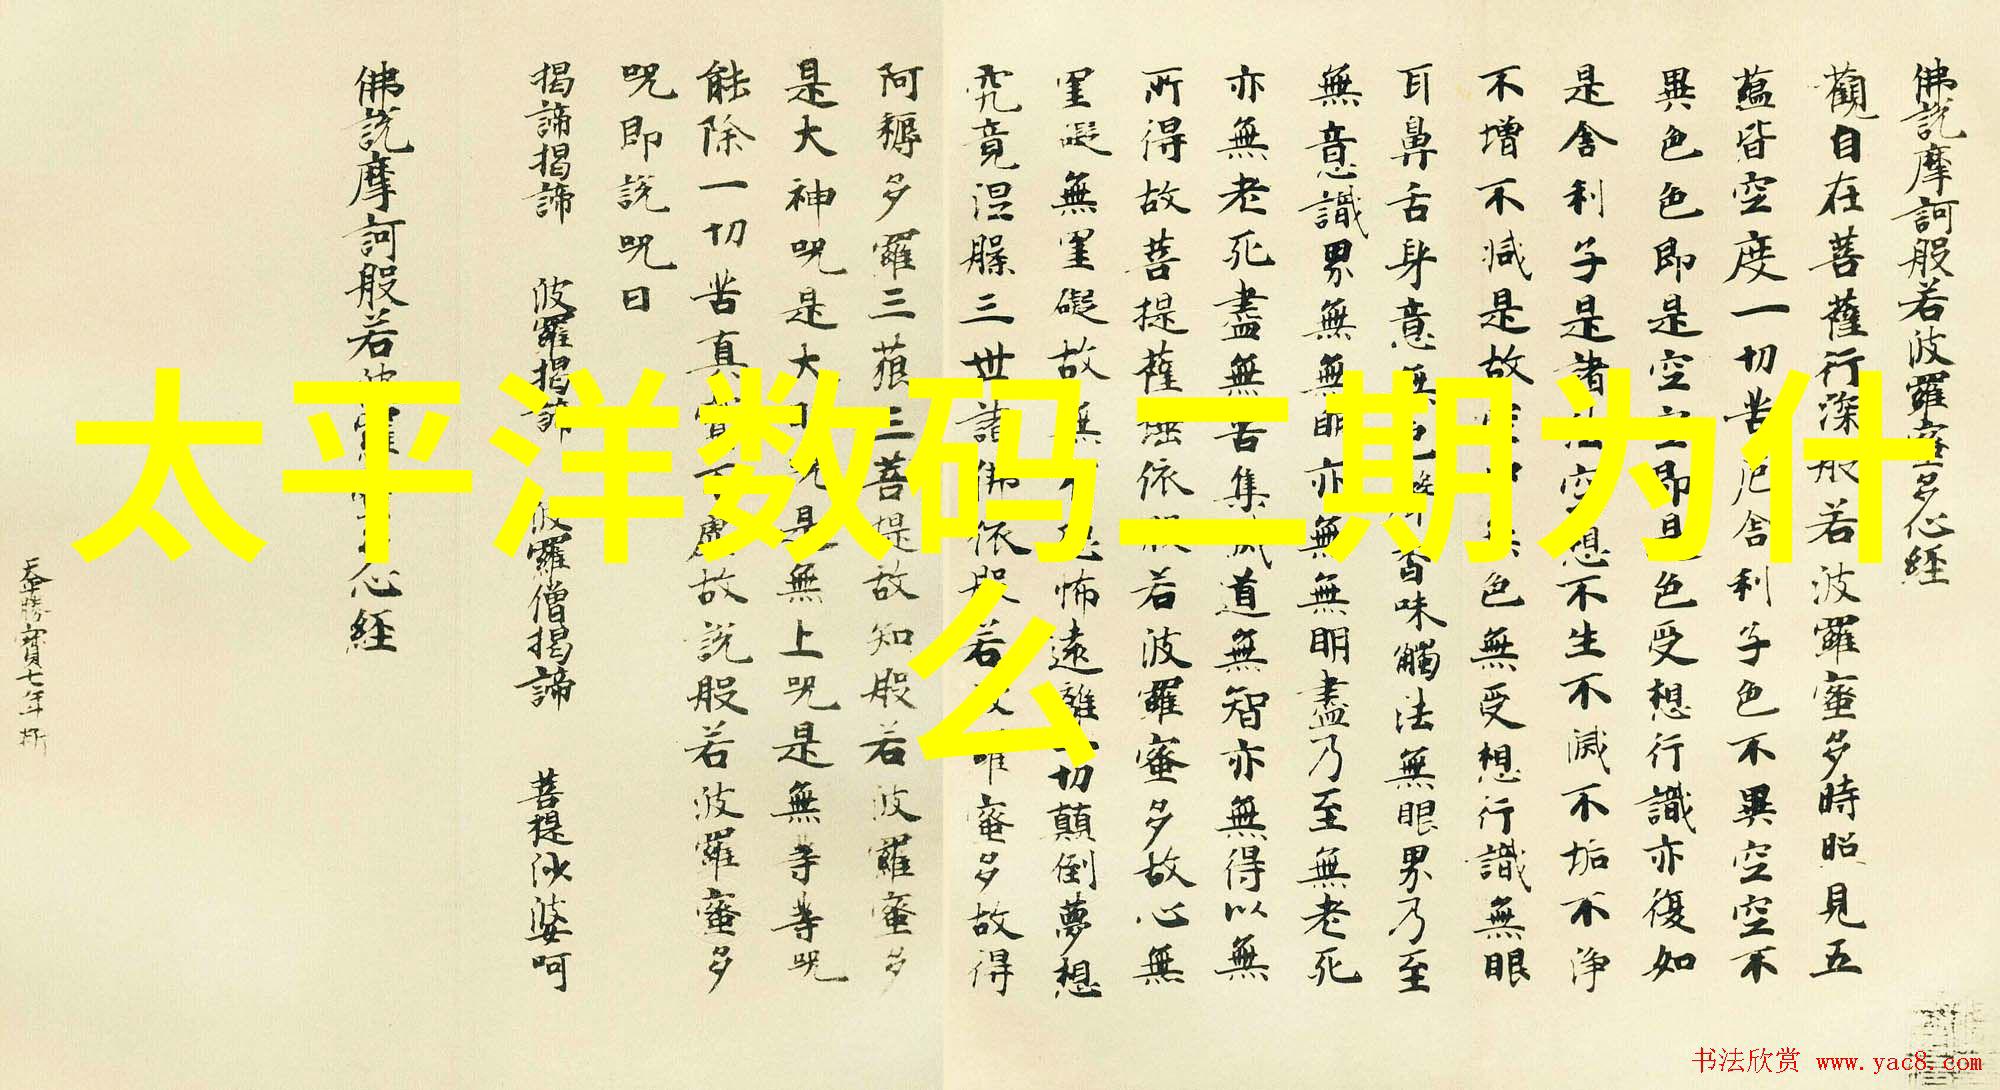 佛說摩訶般若波羅蜜多心經
觀自在菩薩行深般若波羅蜜多時照見五
蘊皆空度一切苦厄舍利子色不異空空不
異色色即是空空即是色受想行識亦復如
是舍利子是諸法空想不生不滅不垢不净
不增不減是故空中無色無受想行識無眼
耳鼻舌身意無色聲香味觸法無眼界乃至
無意識界無無明亦無無明盡乃至無老死
亦無老死盡無苦集滅道無智亦無得以無
所得故菩提薩埵依般若波羅蜜多故心無
罣礙無罣礙故無有恐怖遠離一切顛倒夢想
究竟涅槃三世諸佛依般若波羅蜜多故得
阿耨多羅三藐三菩提故知般若波羅蜜多
是大神咒是大明咒是無上咒是無等等咒
能除一切苦真實不虛故說般若波羅蜜多
咒即說咒曰
揭諦揭諦 波羅揭諦 波羅僧揭諦 菩提沙婆呵
佛說摩訶般若波羅蜜多心經
天平勝寶七年
太平洋数码二期为什
么
书法欣赏 www.yac8.com